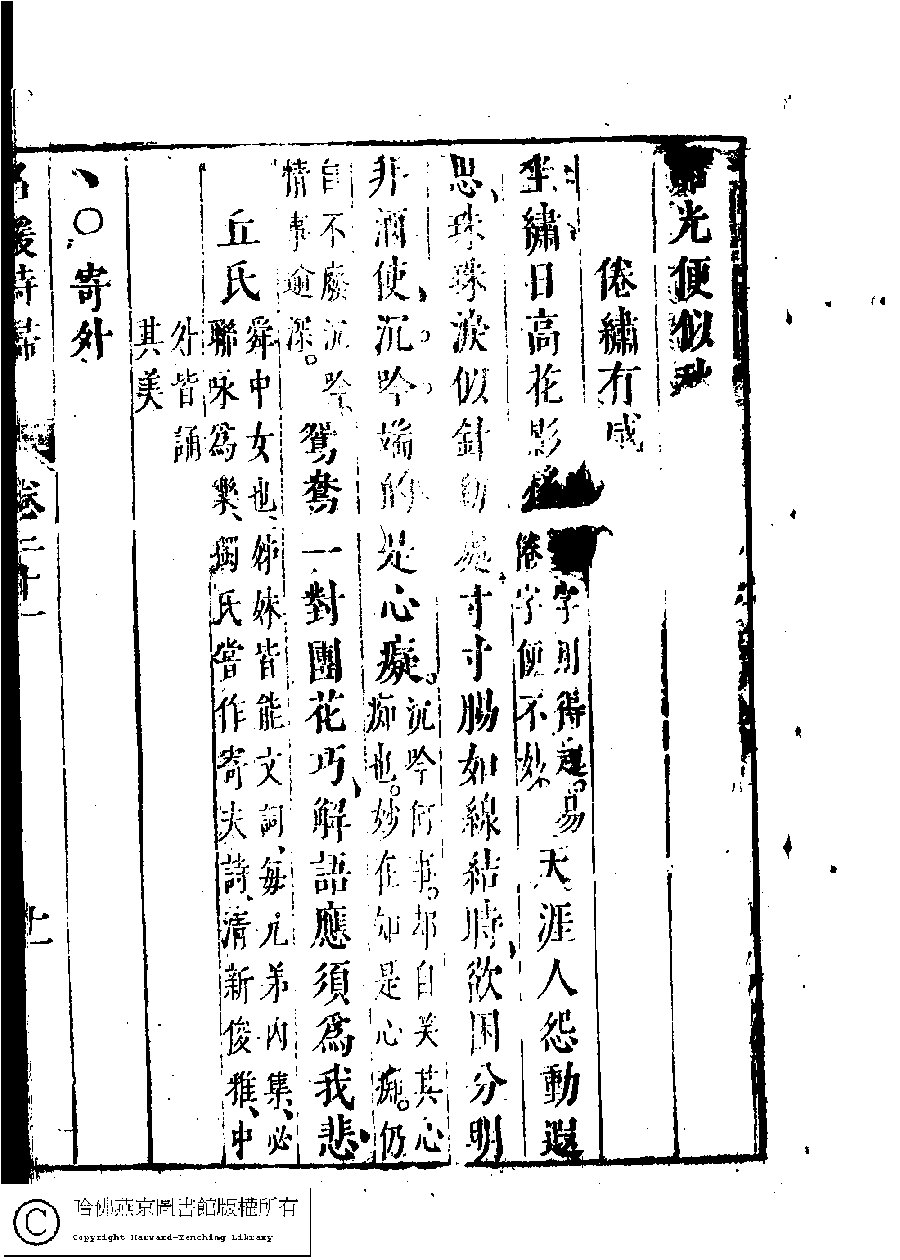 光便似秋
倦繡有感
坐繡日高花影移
字用得趣易
倦字便不妙
天涯人怨動遐
思珠珠淚似針動處寸寸腸如線結時欲困分明
非酒使沉吟端的是心癡
沉吟何事却自笑其心
痴也妙在知是心痴仍
自不廢沉吟
情事逾深
鴛鴦一對團花巧解語應須爲我悲
丘氏
舜中女也姊妹皆能文詞每兄弟內集必
聯咏爲樂獨氏嘗作寄夫詩清新俊雅中
外皆誦
其美
寄外
名媛詩歸
卷二十一
十一
哈佛燕京圖書館版權所有
Copyright Harvard-Yenching Library